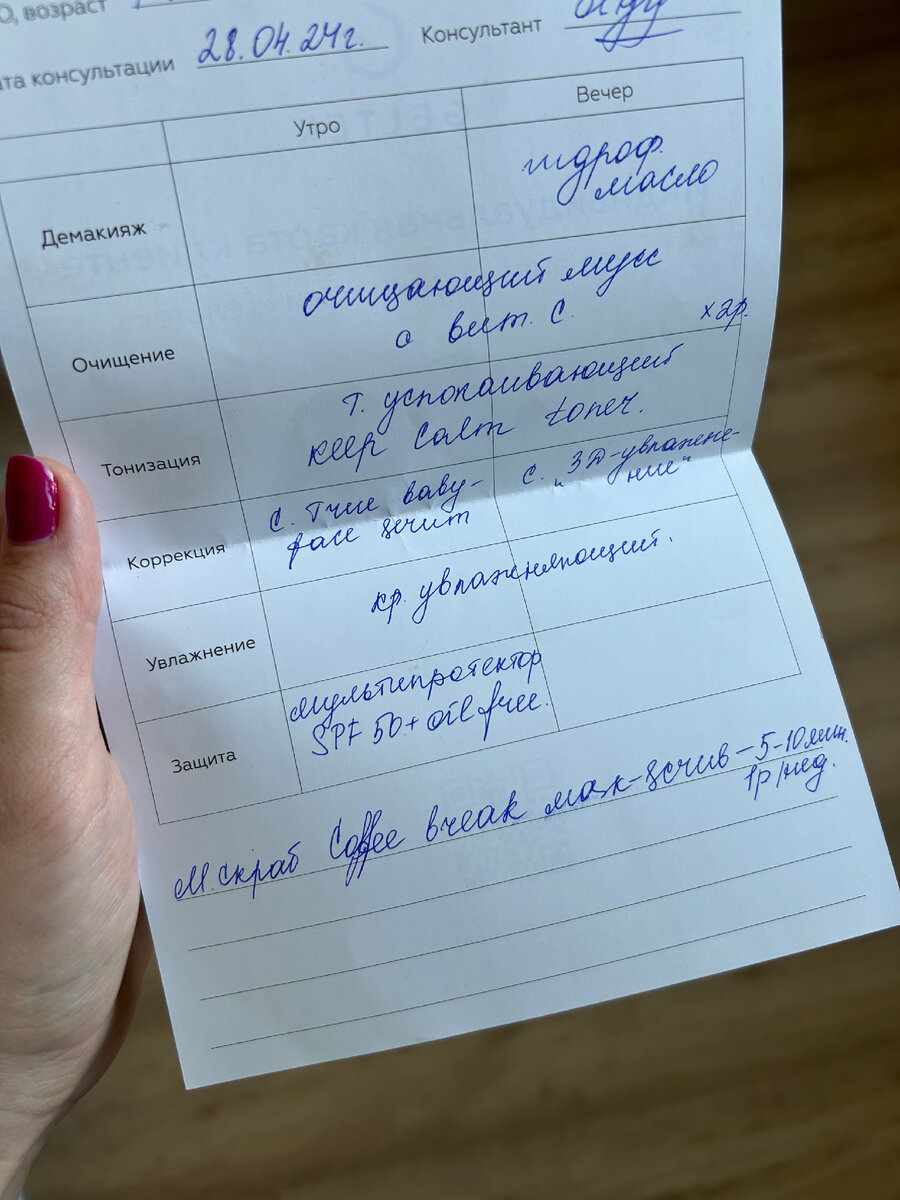 О, возраст
та консультации 28.04.24г. Консультант
Утро Вечер
Демакияж гидроф. масло
Очищение очищающий мусс
с вит. С. x2р.
Тонизация т. успокаивающий
keep calm toner.
Коррекция с. True baby-
face serum
с. "3D-увлажне-
ние"
Увлажнение кр. увлажняющий.
Защита мультипротектор
SPF 50+ oil free.
м. скраб Coffee break mask-scrub – 5-10 мин.
1р/нед.